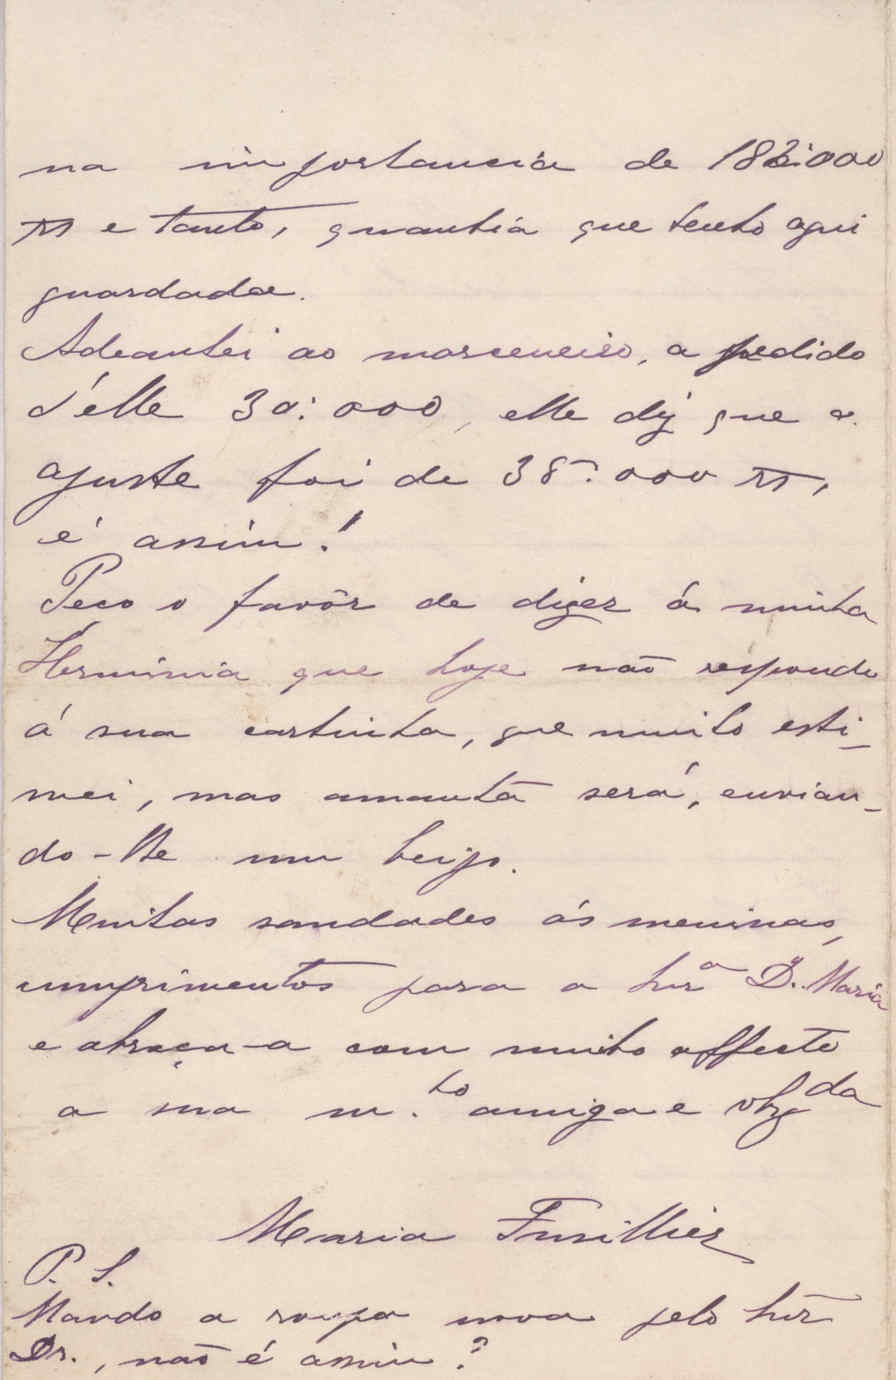 na importancia de 182:000
rs e tanto, quantia que tenho aqui
guardada.
Adeantei ao marceneiro, a pedido
d'élle 30:000, elle diz que o
ajuste foi de 38:000 rs,
é assim!
Peco o favôr de dizer á minha
Herminia que hoje não respondo
á sua cartinha, que muito esti-
mei, mas amanhã será, envian-
do-lhe um beijo.
Muitas saudades ás meninas,
cumprimentos para a Snrª Dª. Maria
e abraça-a com muito affecto
a sua m.to amiga e obgda
Maria
P. S.
Mando a roupa nova pelo Snr
Dr., não é assim?